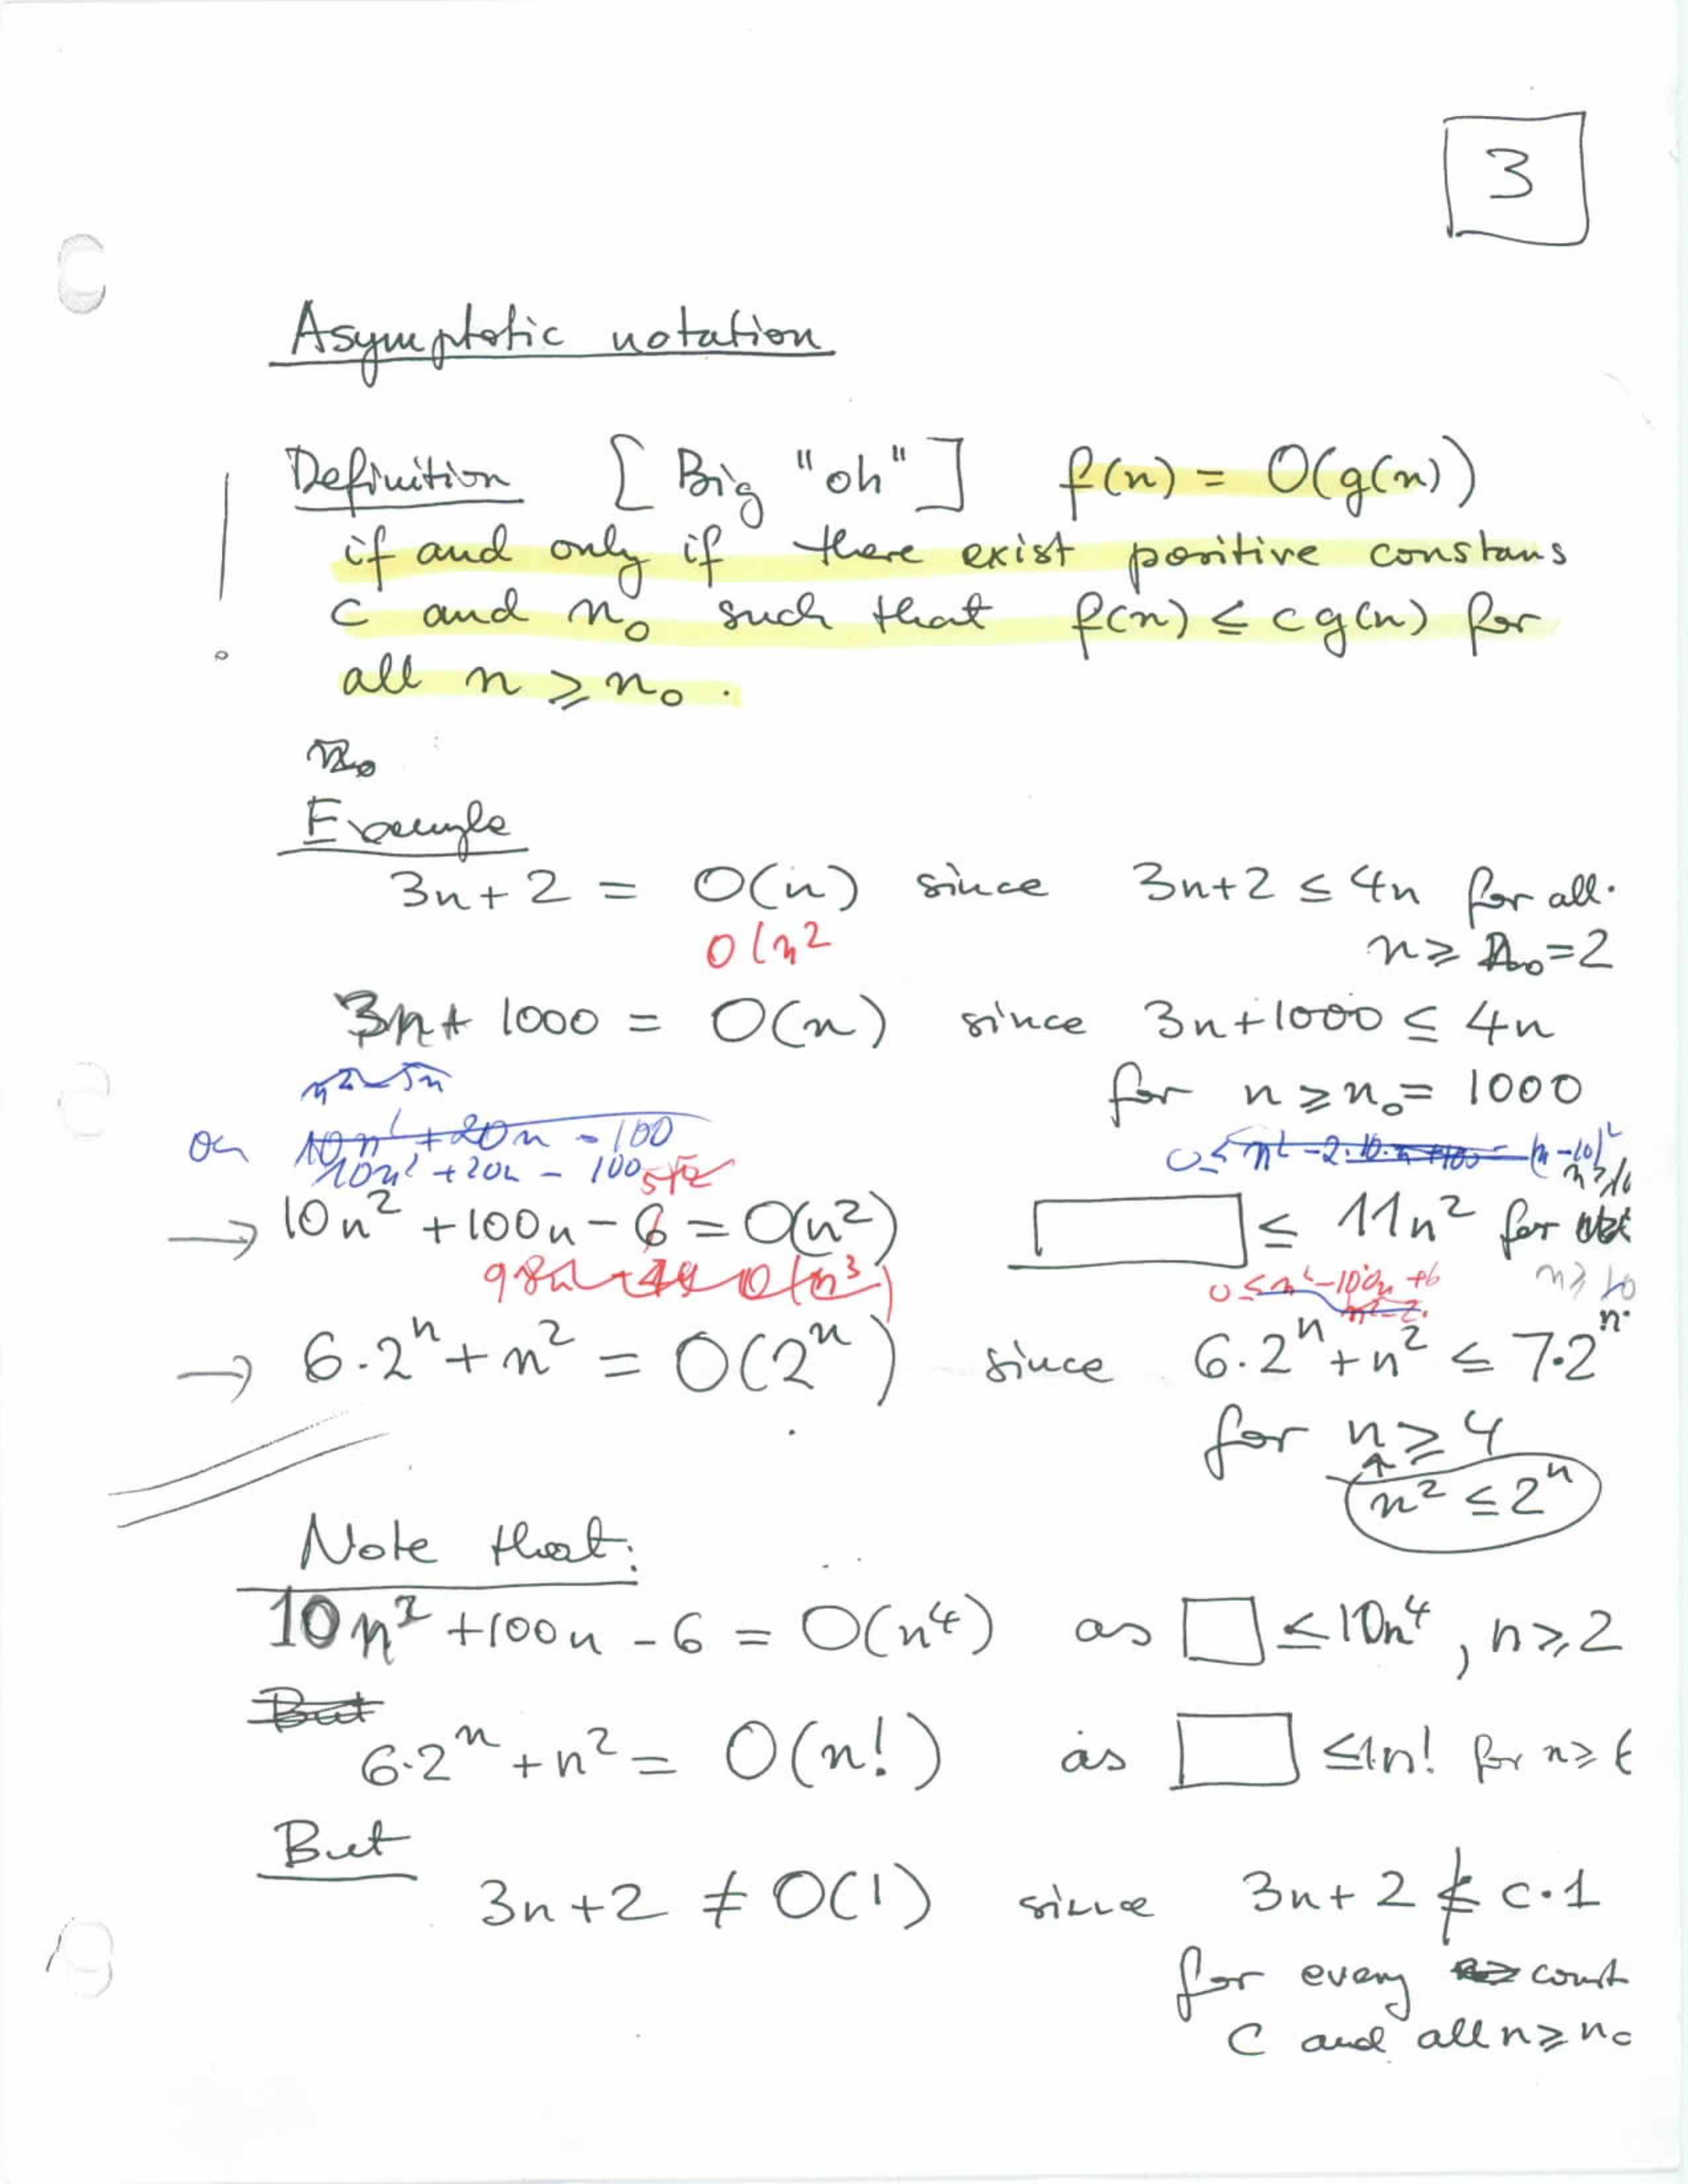 3
Asymptotic notation
Definition [Big "oh"] f(n) = O(g(n))
if and only if there exist positive constans
c and n₀ such that f(n) ≤ cg(n) for
all n ≥ n₀.
n₀
Example
3n+2 = O(n) since 3n+2 ≤ 4n for all
O(n²
n ≥ n₀=2
3n+ 1000 = O(n) since 3n+1000 ≤ 4n
n²-5n
for n ≥ n₀= 1000
10n²+20n-100
0≤ n²-2·10·n+100 = (n-10)²
10n²+20n-100
→ 10n²+100n-6 = O(n²) ≤ 11n² for
0≤n²-100n+6 n≥10
→ 6·2ⁿ+n² = O(2ⁿ) since 6·2ⁿ+n² ≤ 7·2ⁿ
for n≥4
n² ≤ 2ⁿ
Note that:
10n²+100n-6 = O(n⁴) as □ ≤10n⁴, n≥2
But
6·2ⁿ+n² = O(n!) as □ ≤1n! for n≥
But
3n+2 ≠ O(1) since 3n+2 ≰ c·1
for every const
C and all n≥n₀